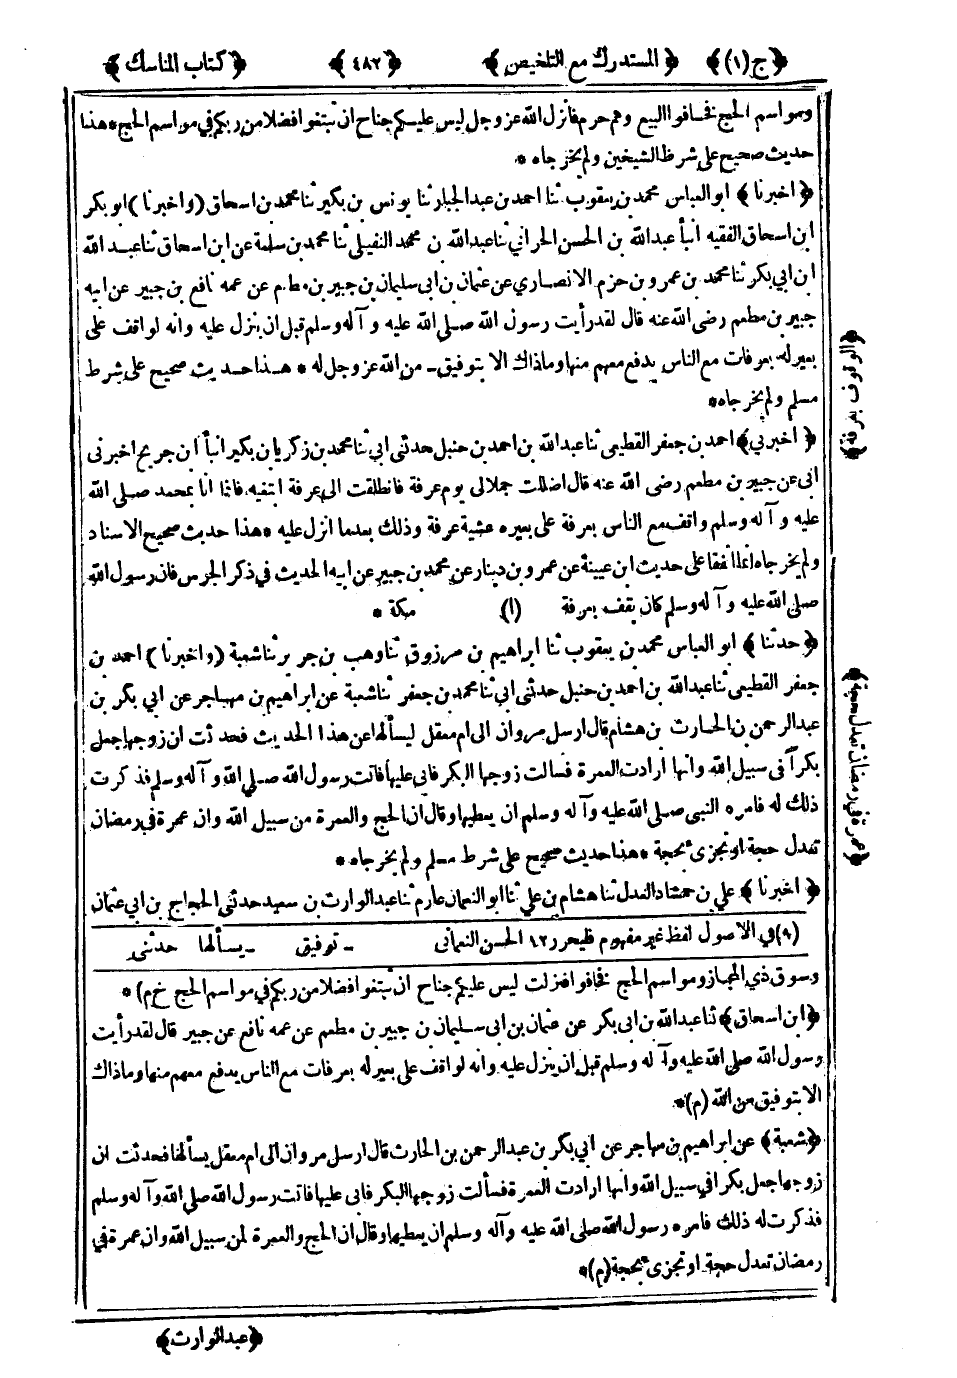 ﴿ ج (١) ﴾ ﴿ المستدرك مع التلخيص ﴾ ﴿ ٤٨٢ ﴾ ﴿ كتاب المناسك ﴾
ومواسم الحج فخافوا البيع وهم حرم فأنزل الله عز وجل ليس عليكم جناح ان تبتغوا فضلا من ربكم في مواسم الحج * هذا
حديث صحيح على شرط الشيخين ولم يخرجاه *
﴿ اخبرنا ﴾ ابو العباس محمد بن يعقوب ثنا احمد بن عبد الجبار ثنا يونس بن بكير ثنا محمد بن اسحاق ( واخبرنا ) ابو بكر
ابن اسحاق الفقيه انبأ عبد الله بن الحسن الحراني ثنا عبد الله بن محمد النفيلي ثنا محمد بن سلمة عن ابن اسحاق ثنا عبد الله
ابن ابي بكر ثنا محمد بن عمرو بن حزم الانصاري عن عثمان بن ابى سليمان بن جبير بن مطعم عن عمه نافع بن جبير عن ابيه
جبير بن مطعم رضى الله عنه قال لقد رأيت رسول الله صلى الله عليه وآله وسلم قبل ان ينزل عليه وانه لواقف على
بعير له بعرفات مع الناس يدفع معهم منها وما ذاك الا بتوفيق - من الله عز وجل له * هذا حديث صحيح على شرط
مسلم ولم يخرجاه *
﴿ اخبرني ﴾ احمد بن جعفر القطيعى ثنا عبد الله بن احمد بن حنبل حدثنى ابي ثنا محمد بن زكريا بن بكير انبأ ابن جريج اخبرنى
ابى عن جبير بن مطعم رضى الله عنه قال اضللت جملا لى يوم عرفة فانطلقت الى عرفة ابتغيه فاذا انا بمحمد صلى الله
عليه وآله وسلم واقف مع الناس بعرفة على بعيره عشية عرفة وذلك بعدما انزل عليه * هذا حديث صحيح الاسناد
ولم يخرجاه انما اتفقا على حديث ابن عيينة عن عمرو بن دينار عن محمد بن جبير عن ابيه الحديث في ذكر الحمس فان رسول الله
صلى الله عليه وآله وسلم كان يقف بعرفة (١) مكة *
﴿ حدثنا ﴾ ابو العباس محمد بن يعقوب ثنا ابراهيم بن مرزوق ثنا وهب بن جرير ثنا شعبة ( واخبرنا ) احمد بن
جعفر القطيعى ثنا عبد الله بن احمد بن حنبل حدثنى ابي ثنا محمد بن جعفر ثنا شعبة عن ابراهيم بن مهاجر عن ابي بكر بن
عبد الرحمن بن الحارث بن هشام قال ارسل مروان الى ام معقل ليسألها عن هذا الحديث فحدثت ان زوجها جعل
بكراً فى سبيل الله وانها ارادت العمرة فسالت زوجها البكر فابى عليها فاتت رسول الله صلى الله وآله وسلم فذكرت
ذلك له فامره النبى صلى الله عليه وآله وسلم ان يعطيها وقال ان الحج والعمرة من سبيل الله وان عمرة في رمضان
تعدل حجة او تجزى بحجة * هذا حديث صحيح على شرط مسلم ولم يخرجاه *
﴿ اخبرنا ﴾ على بن حمشاد العدل ثنا هشام بن علي ثنا ابو النعمان عارم ثنا عبد الوارث بن سعيد حدثنى الحجاج بن ابي عثمان
(٩) في الاصول لفظ غير مفهوم فليحرر ١٢ الحسن النعمانى - توفيق - يسألها حدثنى
وسوق ذي المجاز ومواسم الحج فخافوا فنزلت ليس عليكم جناح ان تبتغوا فضلا من ربكم في مواسم الحج خ م) *
﴿ ابن اسحاق ﴾ ثنا عبد الله بن ابى بكر عن عثمان بن ابى سليمان بن جبير بن مطعم عن عمه نافع عن جبير قال لقد رأيت
رسول الله صلى الله عليه وآله وسلم قبل ان ينزل عليه وانه لواقف على بعير له بعرفات مع الناس يدفع معهم منها وما ذاك
الا بتوفيق من الله (م) *
﴿ شعبة ﴾ عن ابراهيم بن مهاجر عن ابي بكر بن عبد الرحمن بن الحارث قال ارسل مروان الى ام معقل يسألها فحدثت ان
زوجها جعل بكرا في سبيل الله وانها ارادت العمرة فسألت زوجها البكر فابى عليها فاتت رسول الله صلى الله وآله وسلم
فذكرت له ذلك فامره رسول الله صلى الله عليه وآله وسلم ان يعطيها وقال ان الحج والعمرة لمن سبيل الله وان عمرة في
رمضان تعدل حجة او تجزى بحجة (م) *
﴿ عبد الوارث ﴾
﴿ الوقوف بعرفة ﴾
﴿ عمرة في رمضان تعدل حجة ﴾